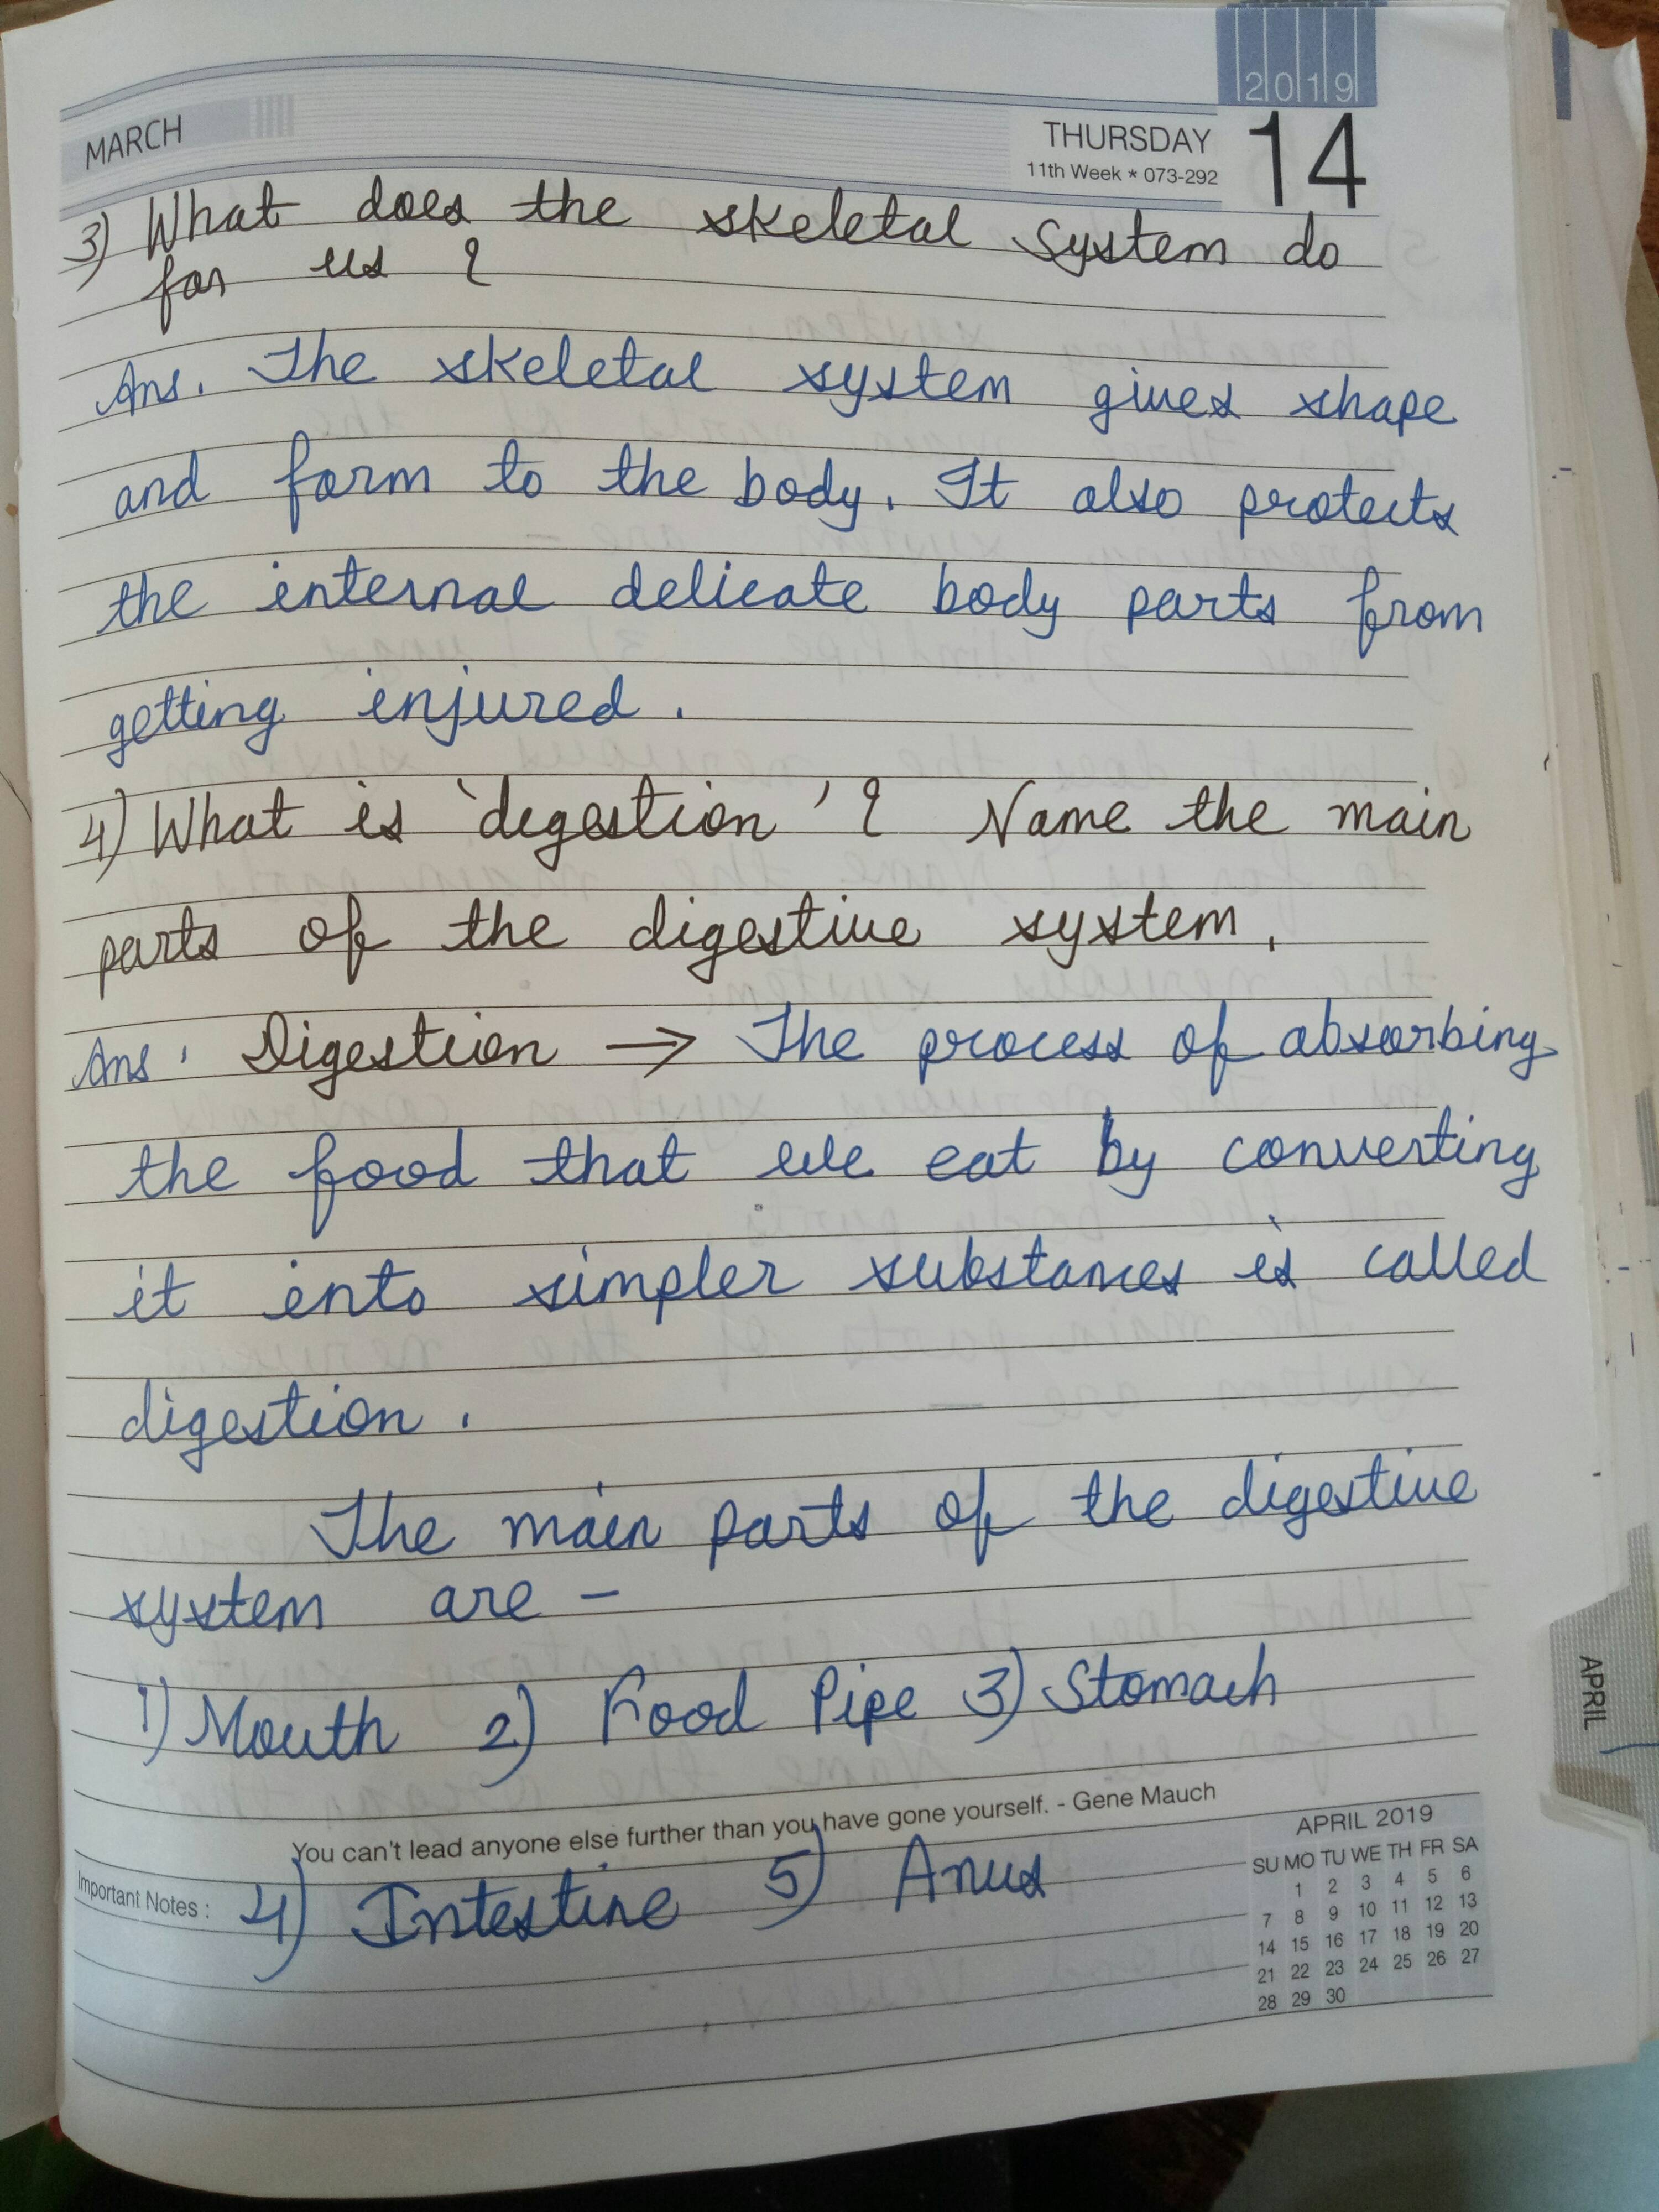 2019
MARCH
THURSDAY
14
11th Week * 073-292
3) What does the skeletal system do
for us ?
Ans. The skeletal system gives shape
and form to the body. It also protects
the internal delicate body parts from
getting injured.
4) What is 'digestion' ? Name the main
parts of the digestive system.
Ans. Digestion → The process of absorbing
the food that we eat by converting
it into simpler substances is called
digestion.
The main parts of the digestive
system are –
1) Mouth 2) Food Pipe 3) Stomach
You can't lead anyone else further than you have gone yourself. - Gene Mauch
Important Notes :
4) Intestine 5) Anus
APRIL 2019
SU MO TU WE TH FR SA
1 2 3 4 5 6
7 8 9 10 11 12 13
14 15 16 17 18 19 20
21 22 23 24 25 26 27
28 29 30
APRIL